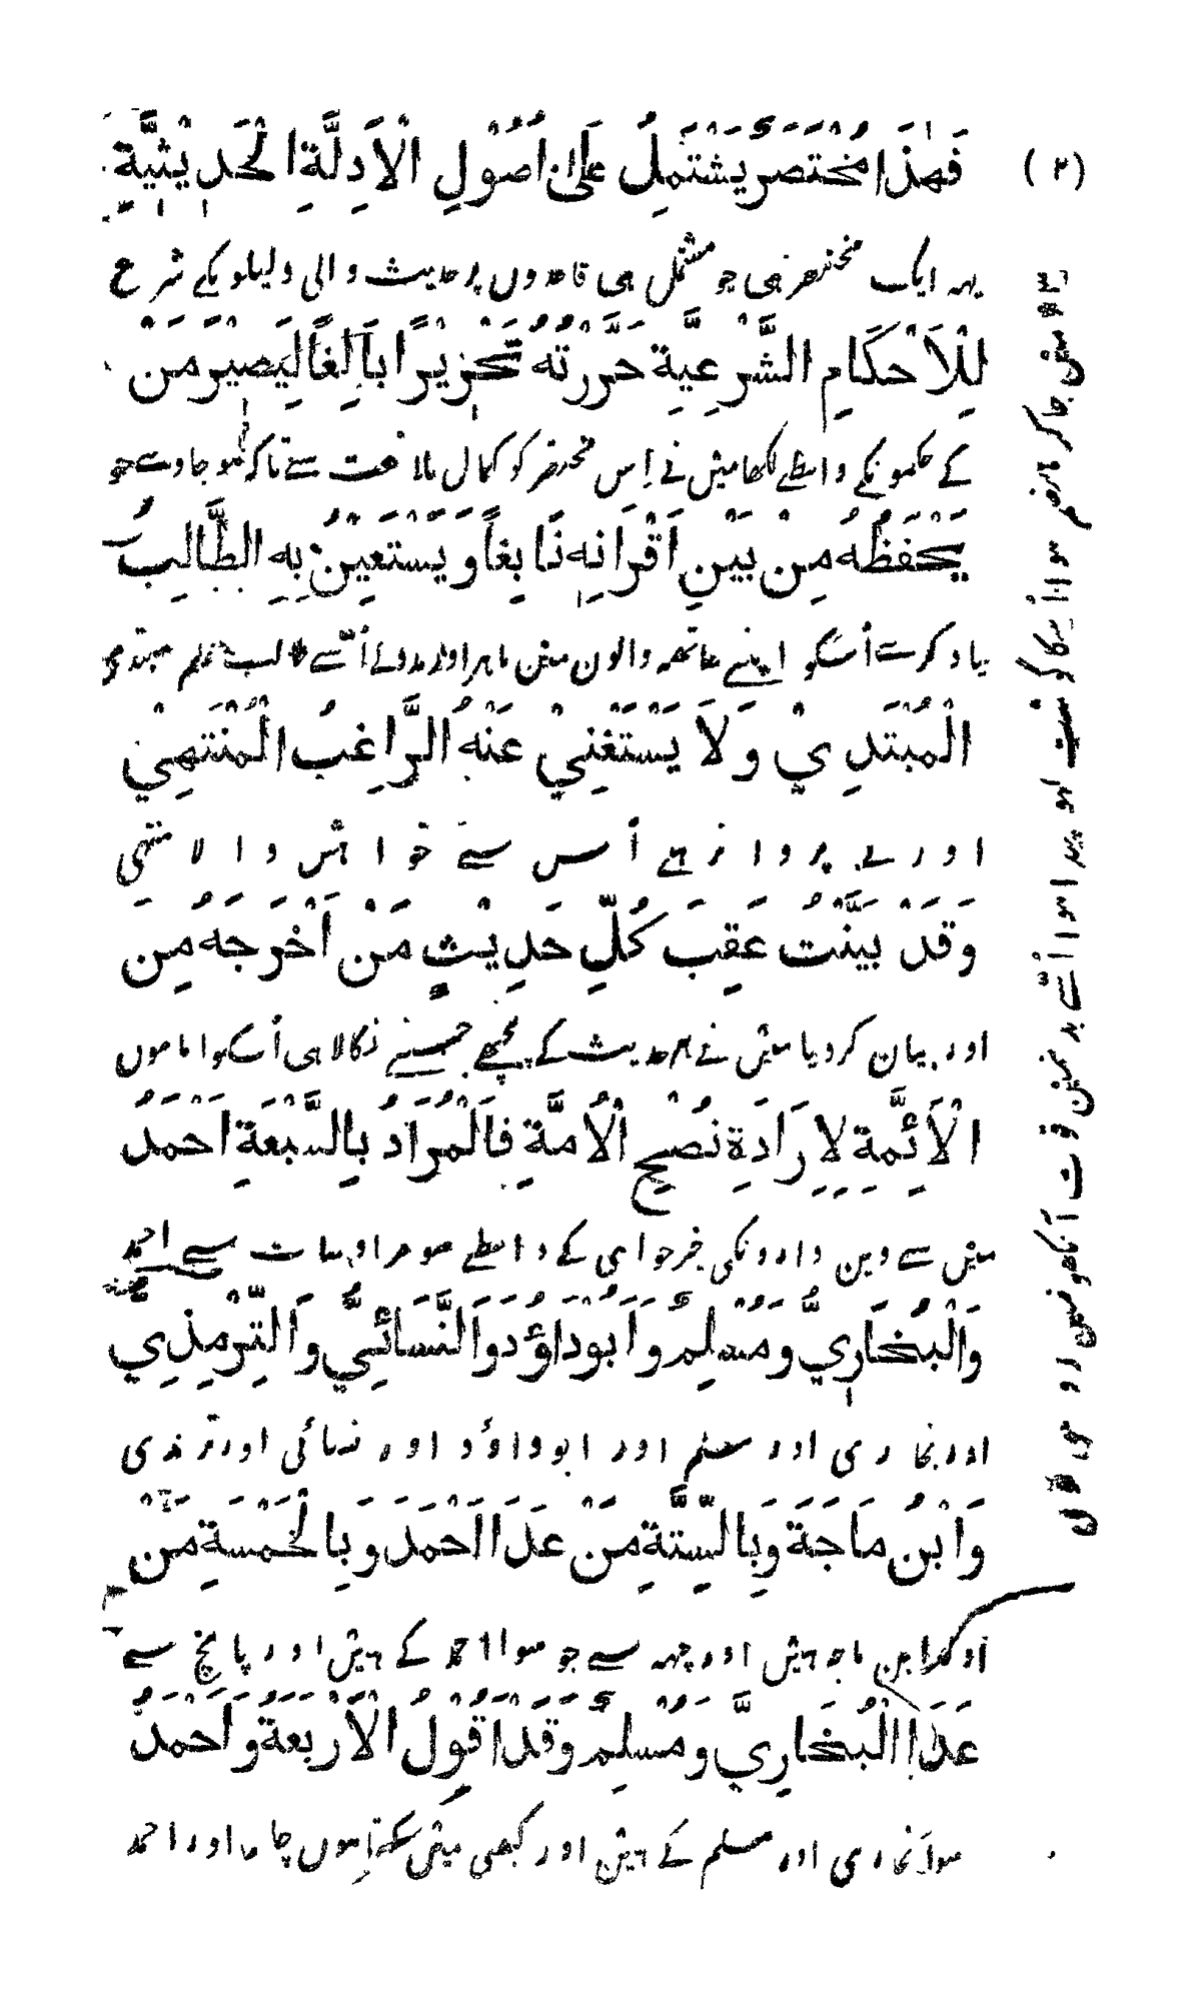 (٢)
فَهٰذَا مُخْتَصَرٌ يَشْتَمِلُ عَلٰى اُصُوْلِ الْاَدِلَّةِ الْحَدِيْثِيَّةِ
یہہ ایک مختصر ہی جو مشتمل ہی قاعدوں پر حدیث والی دلیلونکے شرع
لِلْاَحْكَامِ الشَّرْعِيَّةِ حَرَّرْتُهُ تَحْرِيْرًا بَالِغًا لِيَصِيْرَ مَنْ
کے حکمونکے واسطے لکھا میں نے اِس مختصر کو کمال بلاغت سے تاکہ ہو جاوے جو
يَحْفَظُهُ مِنْ بَيْنِ اَقْرَانِهِ نَابِغًا وَيَسْتَعِيْنُ بِهِ الطَّالِبُ
یاد کرے اُسکو اپنے ساتھہ والون مین ماہر اور مدد لے اُسّے طالب علم مبتدی
الْمُبْتَدِيْ وَلَا يَسْتَغْنِيْ عَنْهُ الرَّاغِبُ الْمُنْتَهِيْ
اور بے پروا نر ہے اُس سے خواہش والا منتہی
وَقَدْ بَيَّنْتُ عَقِبَ كُلِّ حَدِيْثٍ مَنْ اَخْرَجَهُ مِنَ
اور بیان کردیا میں نے ہر حدیث کے پیچھے جسنے نکالا ہی اُسکو اماموں
الْاَئِمَّةِ لِاِرَادَةِ نُصْحِ الْاُمَّةِ فَالْمُرَادُ بِالسَّبْعَةِ اَحْمَدُ
میں سے دین دارونکی خیرخواہی کے واسطے سو مراد سات سے احمد
وَالْبُخَارِيُّ وَمُسْلِمٌ وَاَبُوْدَاؤُدَ وَالنَّسَائِيُّ وَالتِّرْمِذِيُّ
اور بخاری اور مسلم اور ابوداؤد اور نسائی اور ترمذی
وَابْنُ مَاجَةَ وَبِالسِّتَّةِ مَنْ عَدَا اَحْمَدَ وَبِالْخَمْسَةِ مَنْ
اور ابن ماجہ ہیں اور چھہ سے جو سوا احمد کے ہیں اور پانچ سے
عَدَا الْبُخَارِيَّ وَمُسْلِمٌ وَقَدْ اَقُوْلُ الْاَرْبَعَةُ وَاَحْمَدُ
سوا بخاری اور مسلم کے ہیں اور کبھی میں کہتا ہوں چار اور احمد
میں جاکر سوا اُسکا گوشت پیدا ہوا اُسّے بدنمین قوت آنکھونمیں